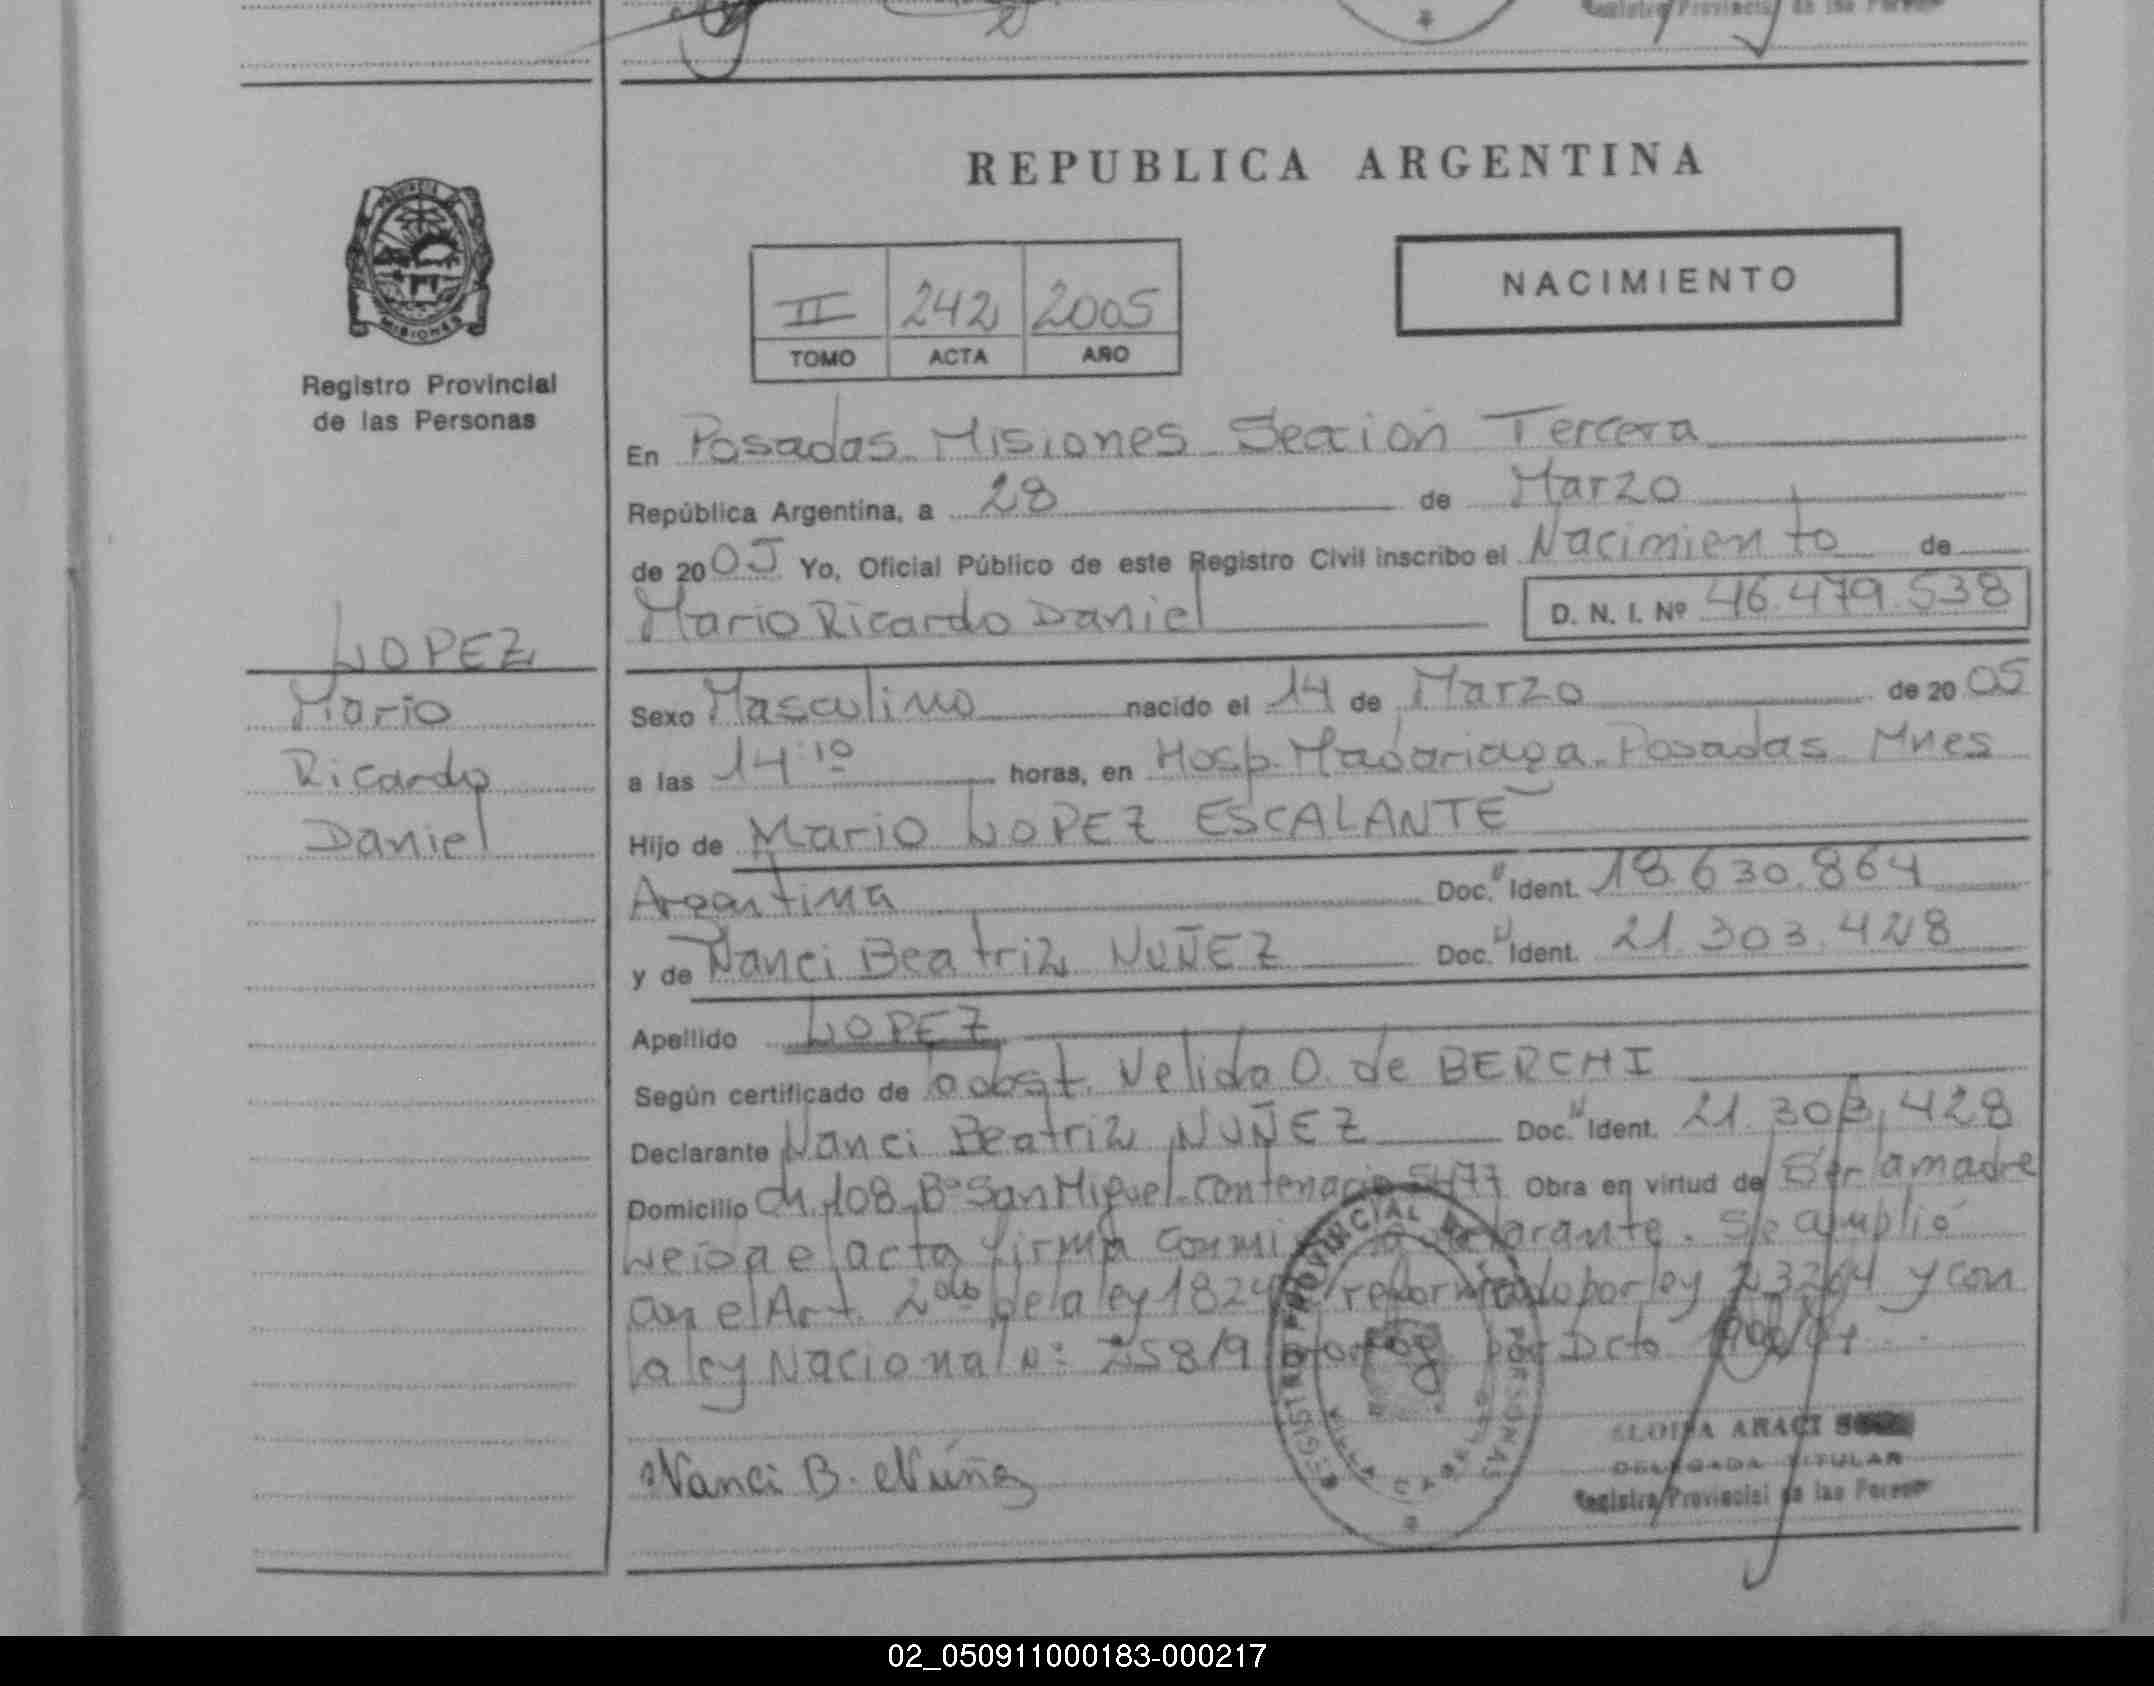 REPUBLICA ARGENTINA
PROVINCIA
MISIONES
Registro Provincial
de las Personas
II 242 2005
TOMO ACTA AÑO
NACIMIENTO
En Posadas Misiones Sección Tercera
República Argentina, a 28 de Marzo
de 2005 Yo, Oficial Público de este Registro Civil inscribo el Nacimiento de
Mario Ricardo Daniel D. N. I. Nº 46.479.538
LOPEZ
Mario
Ricardo
Daniel
Sexo Masculino nacido el 14 de Marzo de 2005
a las 14:10 horas, en Hosp. Madariaga. Posadas Mnes
Hijo de Mario LOPEZ ESCALANTE
Argentina Doc. Ident. 18.630.864
y de Nanci Beatriz NUÑEZ Doc. Ident. 21.303.428
Apellido LOPEZ
Según certificado de obst. Nelida O. de BERCHI
Declarante Nanci Beatriz NUÑEZ Doc. Ident. 21.303.428
Domicilio Ch. 108 Bº San Miguel Centenario 5477 Obra en virtud de Ser la madre
Leida el acta firma Conmigo la declarante. Se amplió
con el Art. 2do de la ley 1824 reformado por ley 23264 y con
la ley Nacional Nº 25819 por Dcto
Nanci B. Núñez
REGISTRO PROVINCIAL PERSONAS
ARACI
DELEGADA TITULAR
Registro Provincial de las Person
02_050911000183-000217